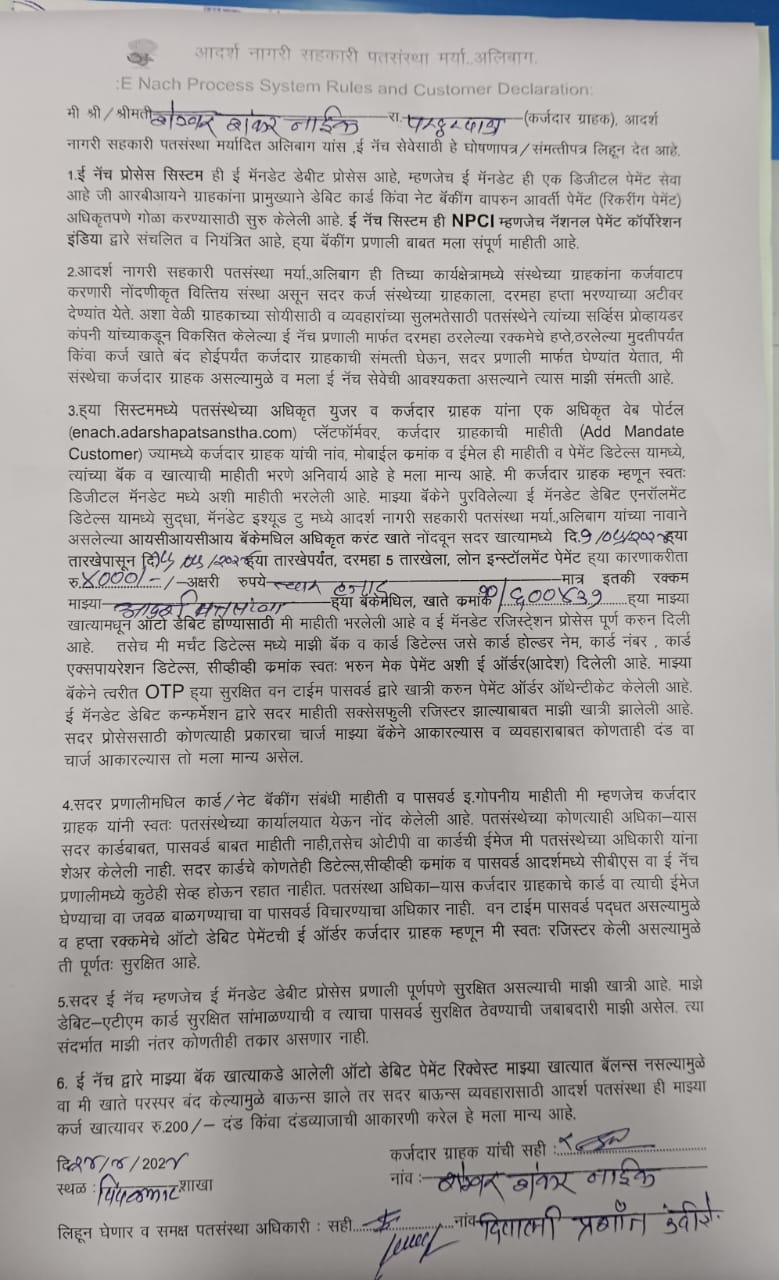 आदर्श नागरी सहकारी पतसंस्था मर्या..अलिबाग.
:E Nach Process System Rules and Customer Declaration:
मी श्री/श्रीमती शंकर नाईक रा. (कर्जदार ग्राहक), आदर्श
नागरी सहकारी पतसंस्था मर्यादित अलिबाग यांस ,ई नॅच सेवेसाठी हे घोषणापत्र/संमत्तीपत्र लिहून देत आहे.
1.ई नॅच प्रोसेस सिस्टिम ही ई मॅनडेट डेबीट प्रोसेस आहे, म्हणजेच ई मॅनडेट ही एक डिजीटल पेमेंट सेवा
आहे जी आरबीआयने ग्राहकांना प्रामुख्याने डेबिट कार्ड किंवा नेट बॅकींग वापरुन आवर्ती पेमेंट (रिकरींग पेमेंट)
अधिकृतपणे गोळा करण्यासाठी सुरु केलेली आहे. ई नॅच सिस्टिम ही NPCI म्हणजेच नॅशनल पेमेंट कॉर्पोरेशन
इंडिया द्वारे संचलित व नियंत्रित आहे, ह्या बॅकींग प्रणाली बाबत मला संपूर्ण माहीती आहे.
2.आदर्श नागरी सहकारी पतसंस्था मर्या.,अलिबाग ही तिच्या कार्यक्षेत्रामध्ये संस्थेच्या ग्राहकांना कर्जवाटप
करणारी नोंदणीकृत वित्तिय संस्था असून सदर कर्ज संस्थेच्या ग्राहकाला, दरमहा हप्ता भरण्याच्या अटीवर
देण्यांत येते. अशा वेळी ग्राहकाच्या सोयीसाठी व व्यवहारांच्या सुलभतेसाठी पतसंस्थेने त्यांच्या सर्व्हिस प्रोव्हायडर
कंपनी यांच्याकडून विकसित केलेल्या ई नॅच प्रणाली मार्फत दरमहा ठरलेल्या रक्कमेचे हप्ते,ठरलेल्या मुदतीपर्यंत
किंवा कर्ज खाते बंद होईपर्यंत कर्जदार ग्राहकाची संमत्ती घेऊन, सदर प्रणाली मार्फत घेण्यांत येतात, मी
संस्थेचा कर्जदार ग्राहक असल्यामुळे व मला ई नॅच सेवेची आवश्यकता असल्याने त्यास माझी संमत्ती आहे.
3.ह्या सिस्टिममध्ये पतसंस्थेच्या अधिकृत युजर व कर्जदार ग्राहक यांना एक अधिकृत वेब पोर्टल
(enach.adarshapatsanstha.com) प्लॅटफॉर्मवर, कर्जदार ग्राहकाची माहीती (Add Mandate
Customer) ज्यामध्ये कर्जदार ग्राहक यांची नांव, मोबाईल क्रमांक व ईमेल ही माहीती व पेमेंट डिटेल्स यामध्ये,
त्यांच्या बॅक व खात्याची माहीती भरणे अनिवार्य आहे हे मला मान्य आहे. मी कर्जदार ग्राहक म्हणून स्वतः
डिजीटल मॅनडेट मध्ये अशी माहीती भरलेली आहे. माझ्या बॅकेने पुरविलेल्या ई मॅनडेट डेबिट एनरॉलमेंट
डिटेल्स यामध्ये सुद्धा, मॅनडेट इश्यूड टु मध्ये आदर्श नागरी सहकारी पतसंस्था मर्या.,अलिबाग यांच्या नावाने
असलेल्या आयसीआयसीआय बॅकेमधिल अधिकृत करंट खाते नोंदवून सदर खात्यामध्ये दि. ह्या
तारखेपासून दि. ह्या तारखेपर्यंत, दरमहा 5 तारखेला, लोन इन्स्टॉलमेंट पेमेंट ह्या कारणाकरीता
रु.४०००/-/-अक्षरी रुपये चार हजार मात्र इतकी रक्कम
माझ्या आदर्श पतसंस्था ह्या बॅकेमधिल, खाते क्रमांक ह्या माझ्या
खात्यामधून ऑटो डेबिट होण्यासाठी मी माहीती भरलेली आहे व ई मॅनडेट रजिस्ट्रेशन प्रोसेस पूर्ण करुन दिली
आहे. तसेच मी मर्चंट डिटेल्स मध्ये माझी बँक व कार्ड डिटेल्स जसे कार्ड होल्डर नेम, कार्ड नंबर , कार्ड
एक्सपायरेशन डिटेल्स, सीव्हीव्ही क्रमांक स्वतः भरुन मेक पेमेंट अशी ई ऑर्डर(आदेश) दिलेली आहे. माझ्या
बॅकेने त्वरीत OTP ह्या सुरक्षित वन टाईम पासवर्ड द्वारे खात्री करुन पेमेंट ऑर्डर ऑथेन्टीकेट केलेली आहे.
ई मॅनडेट डेबिट कन्फर्मेशन द्वारे सदर माहीती सक्सेसफुली रजिस्टर झाल्याबाबत माझी खात्री झालेली आहे.
सदर प्रोसेससाठी कोणत्याही प्रकारचा चार्ज माझ्या बॅकेने आकारल्यास व व्यवहाराबाबत कोणताही दंड वा
चार्ज आकारल्यास तो मला मान्य असेल.
4.सदर प्रणालीमधिल कार्ड/नेट बॅकींग संबंधी माहीती व पासवर्ड इ.गोपनीय माहीती मी म्हणजेच कर्जदार
ग्राहक यांनी स्वतः पतसंस्थेच्या कार्यालयात येऊन नोंद केलेली आहे. पतसंस्थेच्या कोणत्याही अधिका–यास
सदर कार्डबाबत, पासवर्ड बाबत माहीती नाही,तसेच ओटीपी वा कार्डची ईमेज मी पतसंस्थेच्या अधिकारी यांना
शेअर केलेली नाही. सदर कार्डचे कोणतेही डिटेल्स,सीव्हीव्ही क्रमांक व पासवर्ड आदर्शमध्ये सीबीएस वा ई नॅच
प्रणालीमध्ये कुठेही सेव्ह होऊन रहात नाहीत. पतसंस्था अधिका–यास कर्जदार ग्राहकाचे कार्ड वा त्याची ईमेज
घेण्याचा वा जवळ बाळगण्याचा वा पासवर्ड विचारण्याचा अधिकार नाही. वन टाईम पासवर्ड पद्धत असल्यामुळे
व हप्ता रक्कमेचे ऑटो डेबिट पेमेंटची ई ऑर्डर कर्जदार ग्राहक म्हणून मी स्वतः रजिस्टर केली असल्यामुळे
ती पूर्णतः सुरक्षित आहे.
5.सदर ई नॅच म्हणजेच ई मॅनडेट डेबीट प्रोसेस प्रणाली पूर्णपणे सुरक्षित असल्याची माझी खात्री आहे. माझे
डेबिट–एटीएम कार्ड सुरक्षित सांमाळण्याची व त्याचा पासवर्ड सुरक्षित ठेवण्याची जबाबदारी माझी असेल. त्या
संदर्भात माझी नंतर कोणतीही तकार असणार नाही.
6. ई नॅच द्वारे माझ्या बॅक खात्याकडे आलेली ऑटो डेबिट पेमेंट रिक्वेस्ट माझ्या खात्यात बॅलन्स नसल्यामुळे
वा मी खाते परस्पर बंद केल्यामुळे बाऊन्स झाले तर सदर बाऊन्स व्यवहारासाठी आदर्श पतसंस्था ही माझ्या
कर्ज खात्यावर रु.200/– दंड किंवा दंडव्याजाची आकारणी करेल हे मला मान्य आहे.
कर्जदार ग्राहक यांची सही :
दि
नांव:– शंकर नाईक
स्थळ : शाखा
लिहून घेणार व समक्ष पतसंस्था अधिकारी : सही नांव